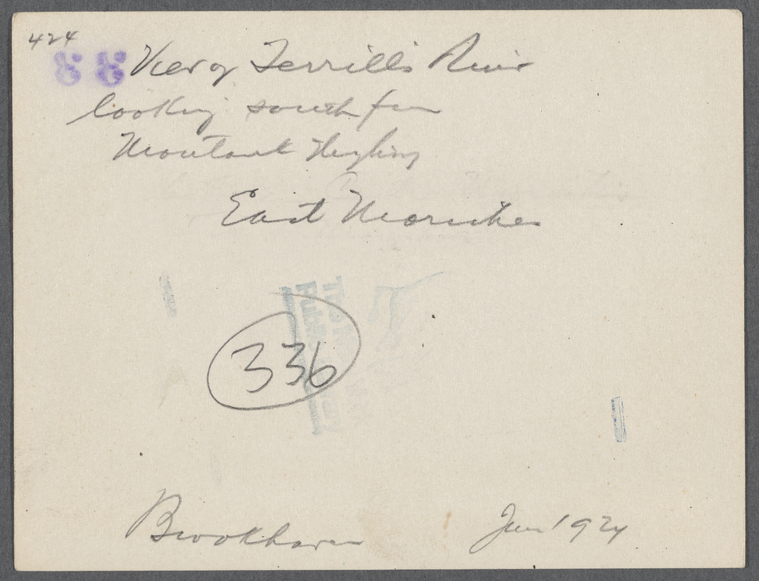 424
88 View of Terrill's River
looking south from
Montauk Highway
East Moriches
336
Brookhaven
1924